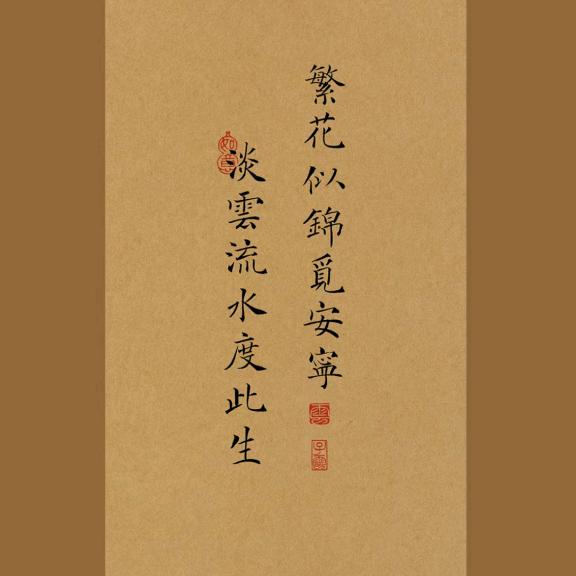 繁花似錦覓安寧
淡雲流水度此生
如意